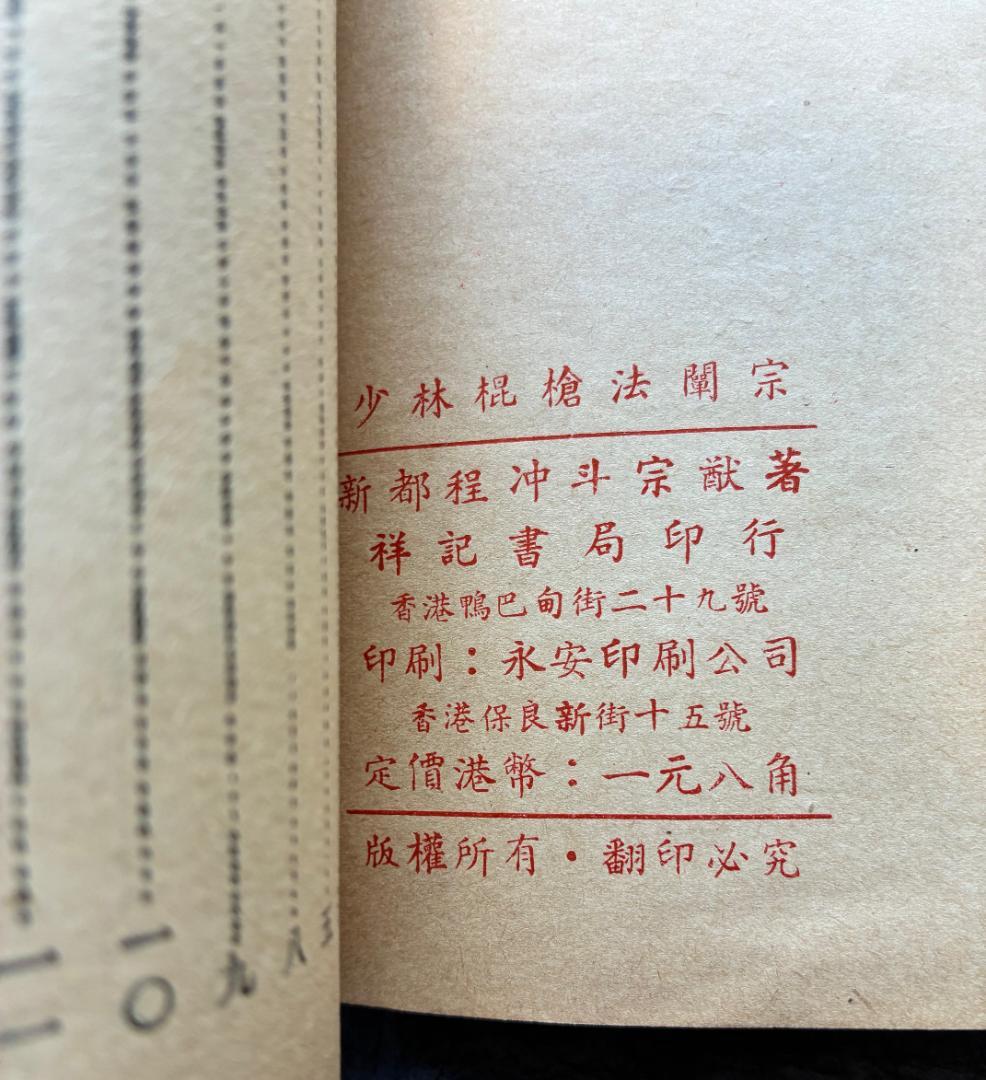 少林棍槍法闡宗
新都程冲斗宗猷著
祥記書局印行
香港鴨巴甸街二十九號
印刷：永安印刷公司
香港保良新街十五號
定價港幣：一元八角
版權所有·翻印必究
三
八
九
一〇
一一